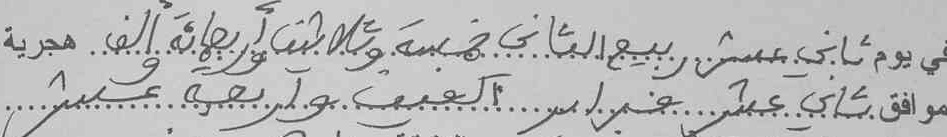 في يوم ثاني عشر ربيع الثاني خمسة وثلاثين وأربعمائة وألف هجرية
موافق ثاني عشر فبراير ألفين وأربعة عشر